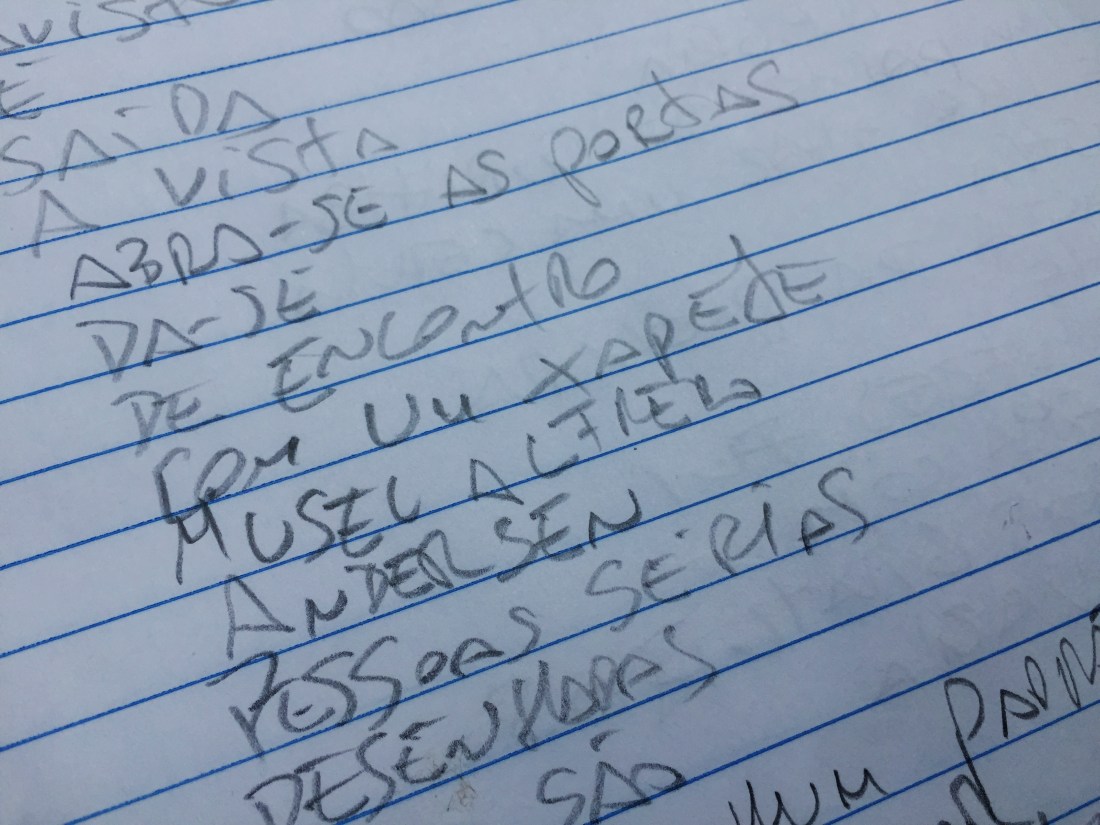 É
SAÍDA
A VISTA
ABRA-SE AS PORTAS
DA-SE
DE ENCONTRO
COM UM XAPETE
MUSEL ALFREDO
ANDERSEN
PESSOAS SÉRIAS
DESENHADAS
SÃO
NUM